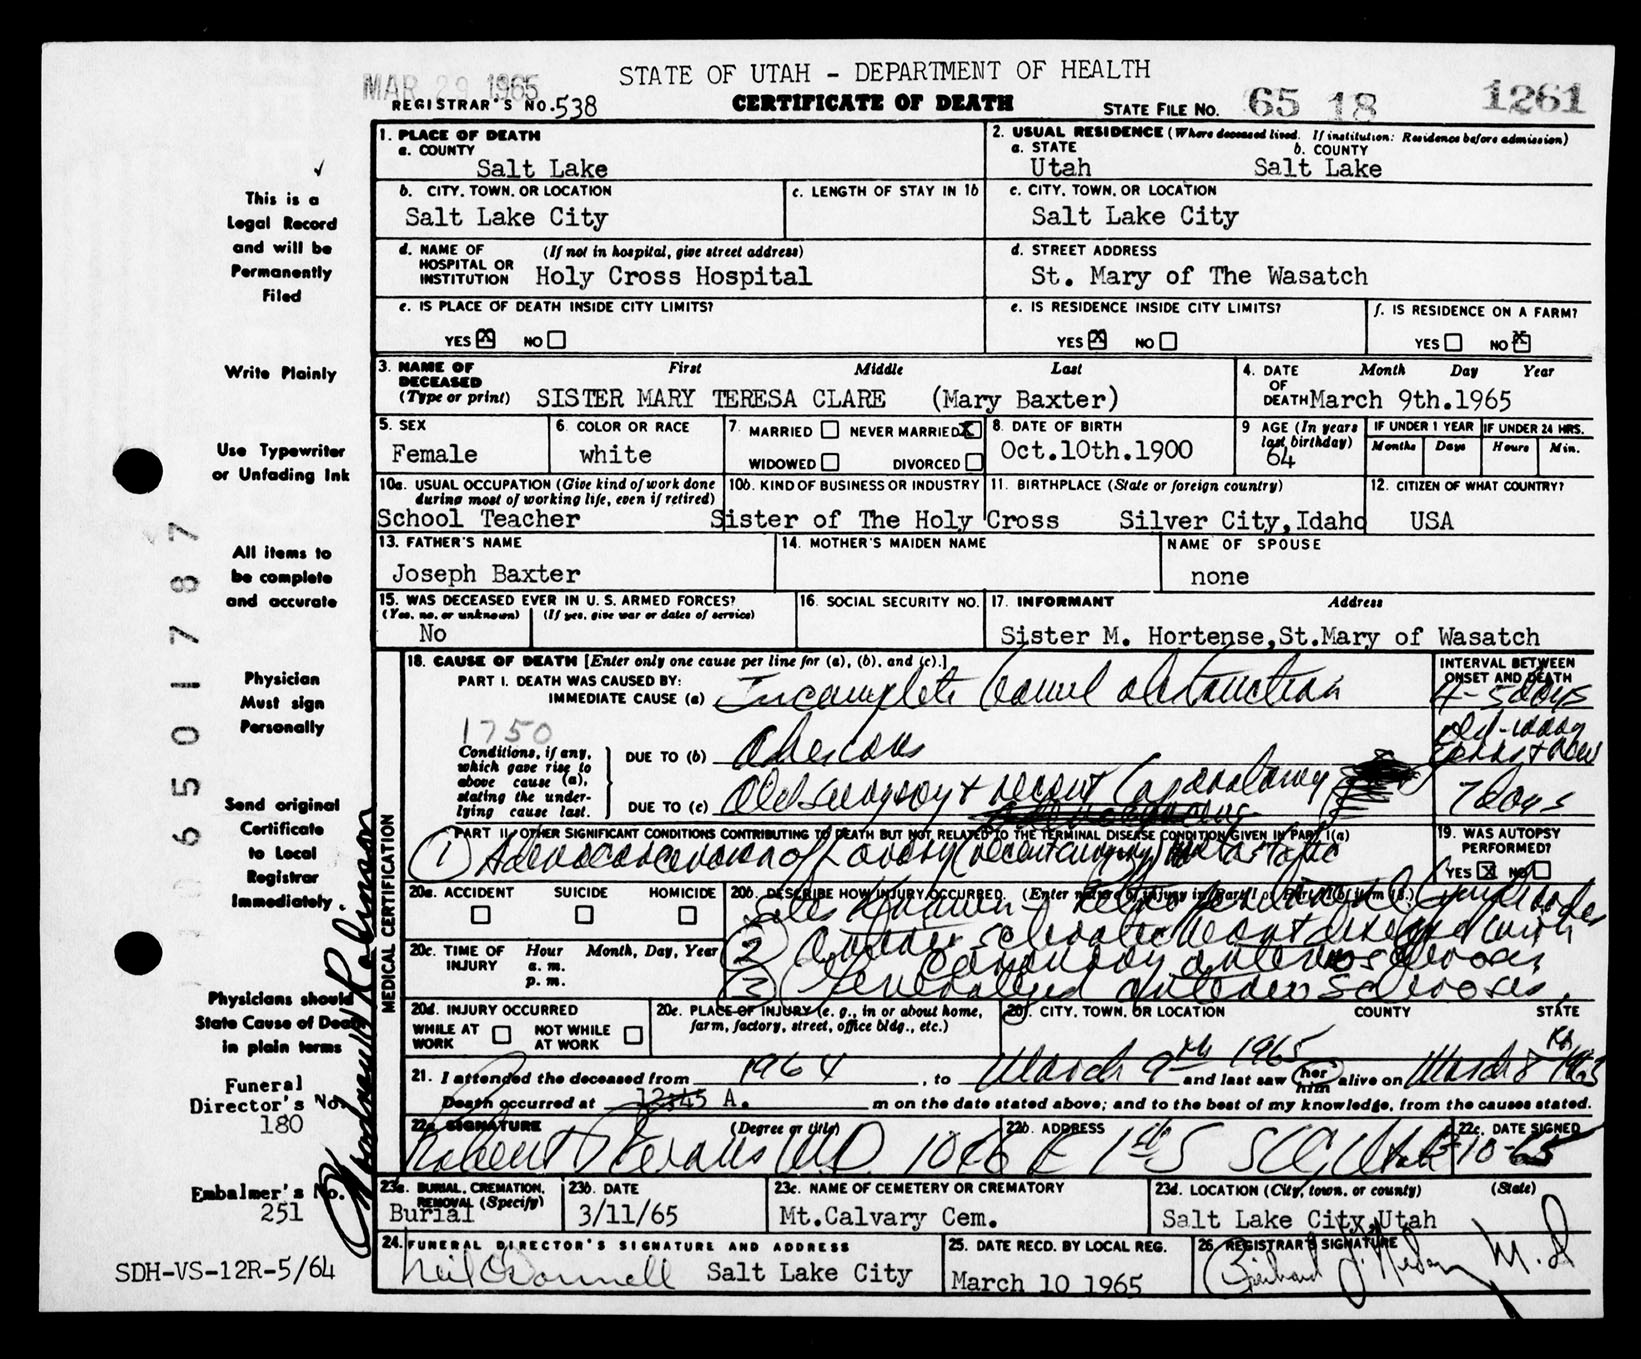 MAR 29 1965
STATE OF UTAH - DEPARTMENT OF HEALTH
REGISTRAR'S NO. 538
CERTIFICATE OF DEATH
STATE FILE NO. 65 18 1261
1. PLACE OF DEATH
a. COUNTY
Salt Lake
2. USUAL RESIDENCE (Where deceased lived. If institution: Residence before admission)
a. STATE b. COUNTY
Utah Salt Lake
b. CITY, TOWN, OR LOCATION
Salt Lake City
c. LENGTH OF STAY IN 1b
c. CITY, TOWN, OR LOCATION
Salt Lake City
d. NAME OF HOSPITAL OR INSTITUTION (If not in hospital, give street address)
Holy Cross Hospital
d. STREET ADDRESS
St. Mary of The Wasatch
e. IS PLACE OF DEATH INSIDE CITY LIMITS?
YES X NO
e. IS RESIDENCE INSIDE CITY LIMITS?
YES X NO
f. IS RESIDENCE ON A FARM?
YES NO X
3. NAME OF DECEASED (Type or print) First Middle Last
SISTER MARY TERESA CLARE (Mary Baxter)
4. DATE OF DEATH Month Day Year
March 9th.1965
5. SEX
Female
6. COLOR OR RACE
white
7. MARRIED NEVER MARRIED X
WIDOWED DIVORCED
8. DATE OF BIRTH
Oct.10th.1900
9 AGE (In years last birthday)
64
IF UNDER 1 YEAR IF UNDER 24 HRS.
Months Days Hours Min.
10a. USUAL OCCUPATION (Give kind of work done during most of working life, even if retired)
School Teacher
10b. KIND OF BUSINESS OR INDUSTRY
Sister of The Holy Cross
11. BIRTHPLACE (State or foreign country)
Silver City,Idaho
12. CITIZEN OF WHAT COUNTRY?
USA
13. FATHER'S NAME
Joseph Baxter
14. MOTHER'S MAIDEN NAME
NAME OF SPOUSE
none
15. WAS DECEASED EVER IN U. S. ARMED FORCES?
(Yes, no, or unknown) (If yes, give war or dates of service)
No
16. SOCIAL SECURITY NO.
17. INFORMANT Address
Sister M. Hortense,St.Mary of Wasatch
MEDICAL CERTIFICATION
18. CAUSE OF DEATH [Enter only one cause per line for (a), (b), and (c).]
PART I. DEATH WAS CAUSED BY:
IMMEDIATE CAUSE (a) Incomplete bowel obstruction
INTERVAL BETWEEN ONSET AND DEATH
4-5 days
1750
Conditions, if any, which gave rise to above cause (a), stating the underlying cause last.
DUE TO (b) Adhesions
DUE TO (c) Old surgery + recent Laparotomy
7 days
PART II. OTHER SIGNIFICANT CONDITIONS CONTRIBUTING TO DEATH BUT NOT RELATED TO THE TERMINAL DISEASE CONDITION GIVEN IN PART I(a)
(1) Adenocarcinoma of Ovary (recent surgery) metastatic
19. WAS AUTOPSY PERFORMED?
YES X NO
20a. ACCIDENT SUICIDE HOMICIDE
20b. DESCRIBE HOW INJURY OCCURRED. (Enter nature of injury in Part I or Part II of item 18.)
(2) Arteriosclerotic heart disease with
coronary arteriosclerosis
(3) Generalized arteriosclerosis
20c. TIME OF INJURY Hour Month, Day, Year
a. m.
p. m.
20d. INJURY OCCURRED
WHILE AT WORK NOT WHILE AT WORK
20e. PLACE OF INJURY (e. g., in or about home, farm, factory, street, office bldg., etc.)
20f. CITY, TOWN, OR LOCATION COUNTY STATE
21. I attended the deceased from 1964, to March 9th 1965 and last saw her him alive on March 8th 1965
Death occurred at 12:45 A. m on the date stated above; and to the best of my knowledge, from the causes stated.
22a. SIGNATURE (Degree or title)
Robert Evans M.D.
22b. ADDRESS
E 1st S SLC, Utah
22c. DATE SIGNED
3-10-65
23a. BURIAL, CREMATION, REMOVAL (Specify)
Burial
23b. DATE
3/11/65
23c. NAME OF CEMETERY OR CREMATORY
Mt.Calvary Cem.
23d. LOCATION (City, town, or county) (State)
Salt Lake City,Utah
24. FUNERAL DIRECTOR'S SIGNATURE AND ADDRESS
Neil O'Donnell Salt Lake City
25. DATE RECD. BY LOCAL REG.
March 10 1965
26. REGISTRAR'S SIGNATURE
M.D
This is a
Legal Record
and will be
Permanently
Filed
Write Plainly
Use Typewriter
or Unfading Ink
All items to
be complete
and accurate
Physician
Must sign
Personally
Send original
Certificate
to Local
Registrar
Immediately.
Physicians should
State Cause of Death
in plain terms
Funeral
Director's No.
180
Embalmer's No.
251
SDH-VS-12R-5/64
0 6 5 0 1 7 8 7